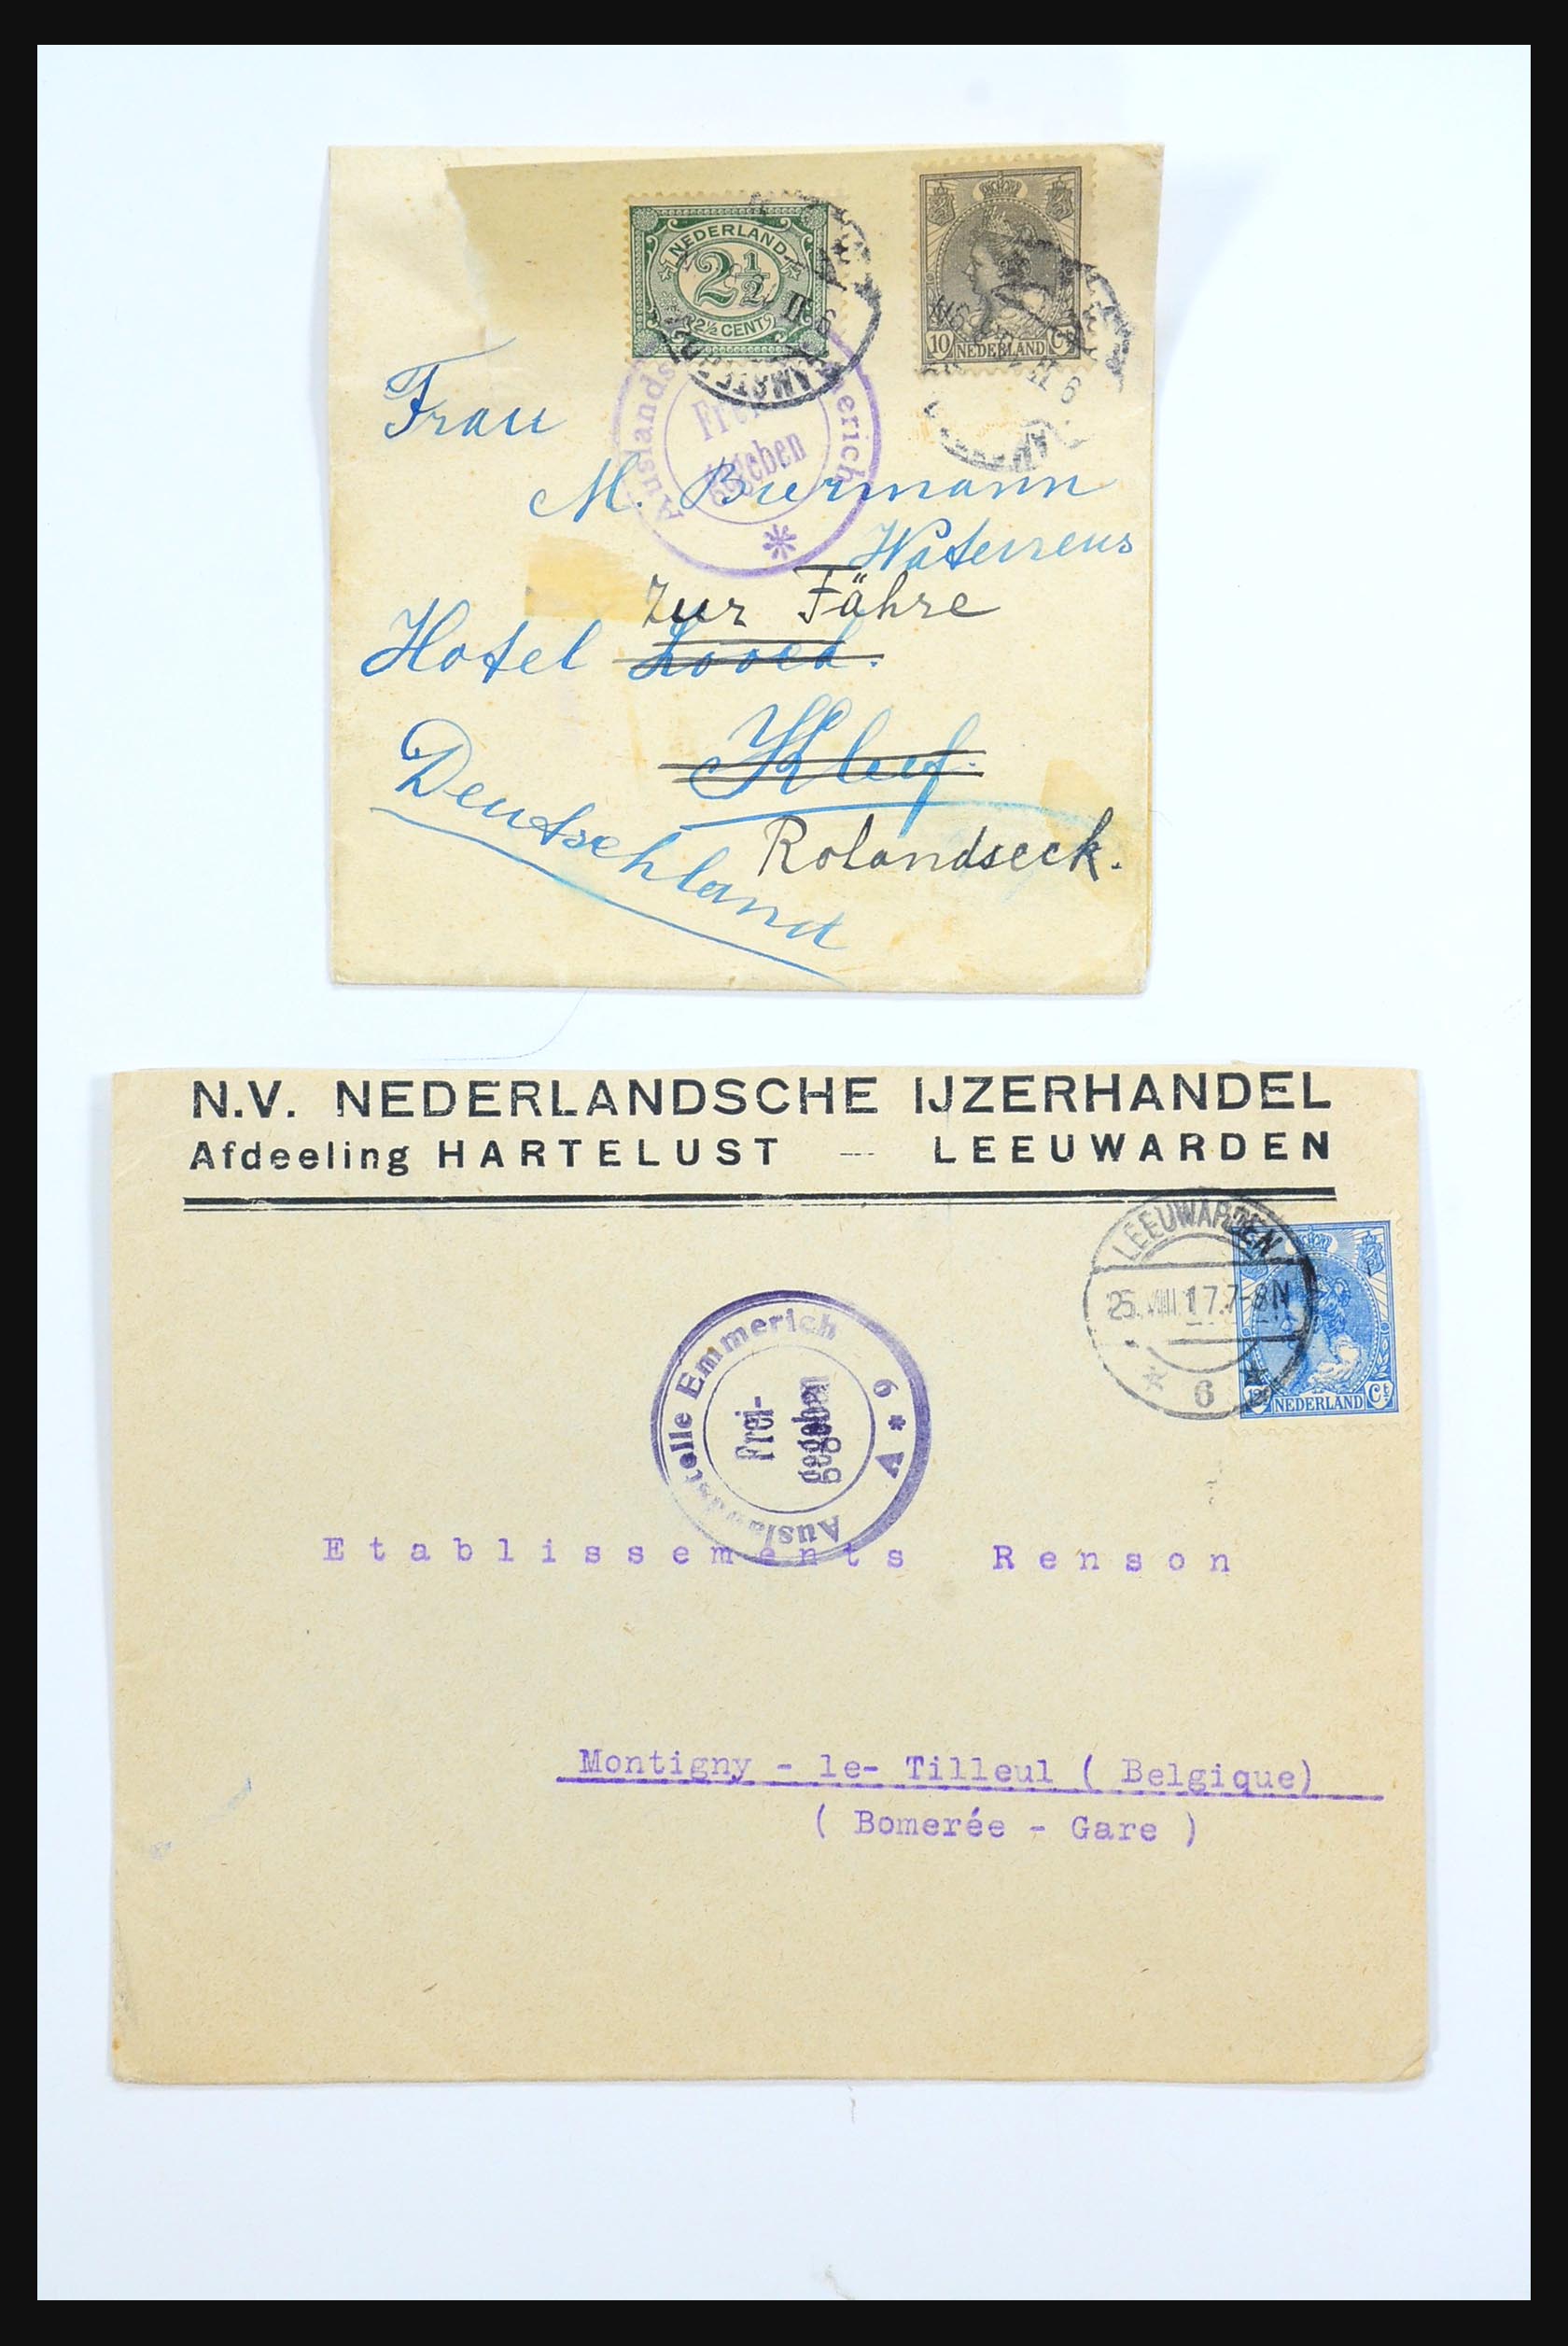 NEDERLAND
2½
2½ CENT
10 NEDERLAND Ct
Frei
gegeben
Frau
M. Buermann
Waterreus
Zur Fähre
Hotel
Kleef.
Deutschland
Rolandseck.
N.V. NEDERLANDSCHE IJZERHANDEL
Afdeeling HARTELUST — LEEUWARDEN
LEEUWARDEN
25.VIII.17.7-8N
6
NEDERLAND Ct
Auslandstelle Emmerich
Frei-
gegeben
A * 9
Etablissements Renson
Montigny - le- Tilleul ( Belgique)
( Bomerée - Gare )